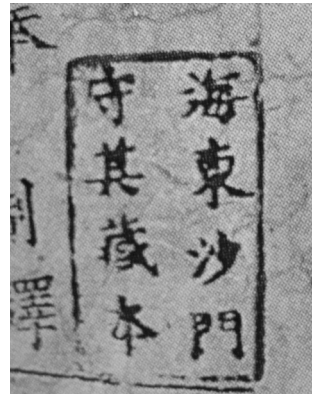 海東沙門
守其藏本